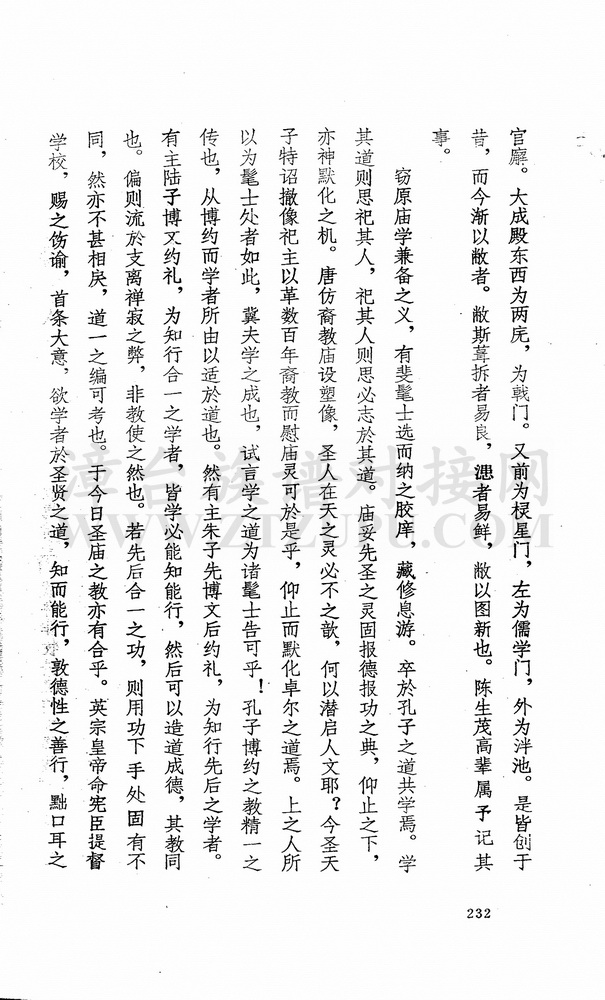 官廨。大成殿东西为两庑，为戟门。又前为棂星门，左为儒学门，外为泮池。是皆创于
昔，而今渐以敝者。敝斯葺拆者易良，漶者易鲜，敝以图新也。陈生茂高辈属予记其
事。
窃原庙学兼备之义，有斐髦士选而纳之胶庠，藏修息游。卒於孔子之道共学焉。学
其道则思祀其人，祀其人则思必志於其道。庙妥先圣之灵固报德报功之典，仰止之下，
亦神默化之机。唐仿裔教庙设塑像，圣人在天之灵必不之歆，何以潜启人文耶？今圣天
子特诏撤像祀主以革数百年裔教而慰庙灵可於是乎，仰止而默化卓尔之道焉。上之人所
以为髦士处者如此，冀夫学之成也，试言学之道为诸髦士告可乎！孔子博约之教精一之
传也，从博约而学者所由以适於道也。然有主朱子先博文后约礼，为知行先后之学者。
有主陆子博文约礼，为知行合一之学者，皆学必能知能行，然后可以造道成德，其教同
也。偏则流於支离禅寂之弊，非教使之然也。若先后合一之功，则用功下手处固有不
同，然亦不甚相戾，道一之编可考也。于今日圣庙之教亦有合乎。英宗皇帝命宪臣提督
学校，赐之饬谕，首条大意，欲学者於圣贤之道，知而能行，敦德性之善行，黜口耳之
232
漳台族谱对接网
WWW.ZTZUPU.COM